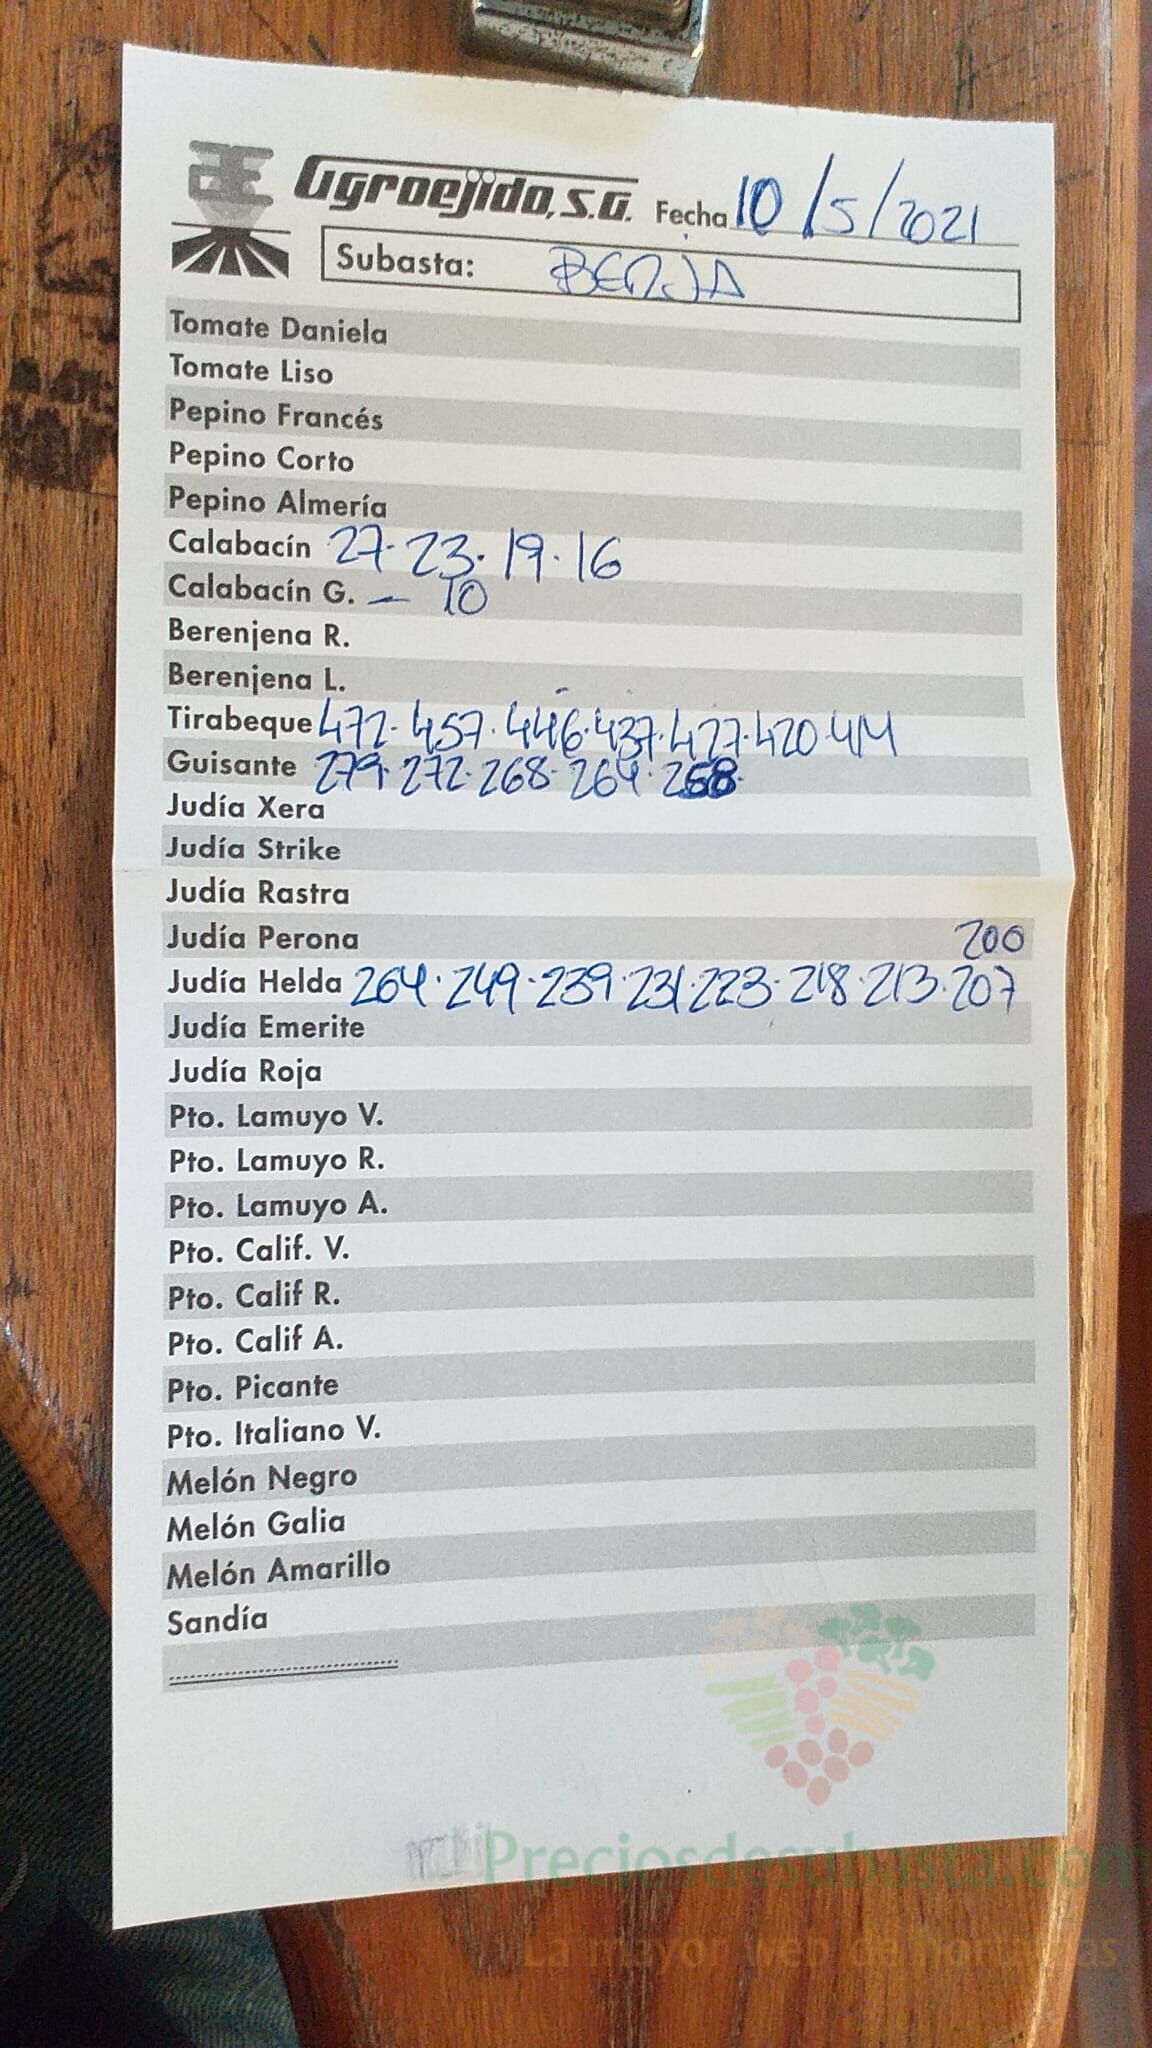 Agroejido, S.A. Fecha 10/5/2021
Subasta: BERJA
Tomate Daniela
Tomate Liso
Pepino Francés
Pepino Corto
Pepino Almería
Calabacín 27·23·19·16
Calabacín G. — 10
Berenjena R.
Berenjena L.
Tirabeque 472·457·446·437·427·420·414
Guisante 279·272·268·264·
Judía Xera
Judía Strike
Judía Rastra
Judía Perona 200
Judía Helda 264·249·239·231·223·218·213·207
Judía Emerite
Judía Roja
Pto. Lamuyo V.
Pto. Lamuyo R.
Pto. Lamuyo A.
Pto. Calif. V.
Pto. Calif R.
Pto. Calif A.
Pto. Picante
Pto. Italiano V.
Melón Negro
Melón Galia
Melón Amarillo
Sandía
Preciosdesubasta.com
La mayor web de hortalizas